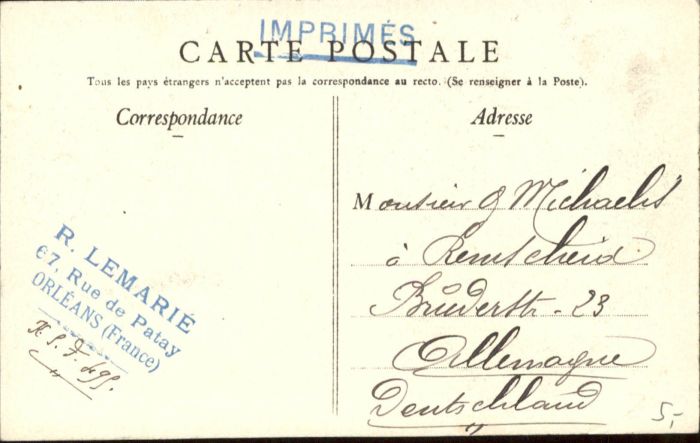 IMPRIMÉS
CARTE POSTALE
Tous les pays étrangers n'acceptent pas la correspondance au recto. (Se renseigner à la Poste).
Correspondance
Adresse
R. LEMARIÉ
67, Rue de Patay
ORLÉANS (France)
Monsieur G Michaelis
à Remscheid
Brüderstr - 23
Allemagne
Deutschland
5,-